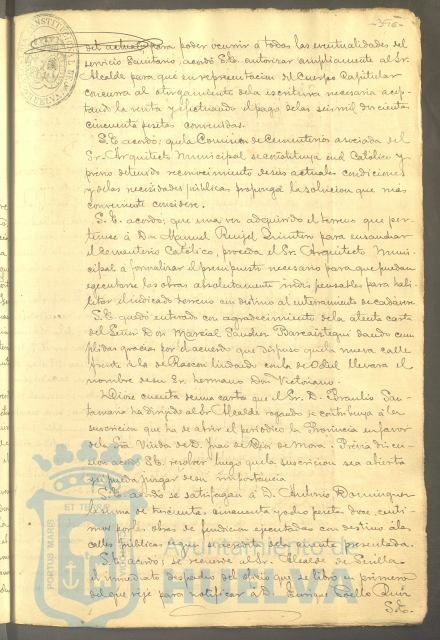 del actual, para poder ocurrir á todas las eventualidades del
servicio Sanitario, acordó S.E. autorizar ampliamente al Sr.
Alcalde para que en representacion del Cuerpo Capitular
concurra al otorgamiento de la escritura necesaria acep-
tando la venta y efectuando el pago de las seis mil doscientas
cincuenta pesetas convenidas.
S.E. acordó: que la Comision de Cementerios asociada del
Sr. Arquitecto Municipal se constituya en el Católico y
previo detenido reconocimiento de sus actuales condiciones
y de las necesidades públicas proponga la solucion que mas
conveniente considere.
S.E. acordó: que una vez adquirido el terreno que per-
tenece á Don Manuel Quintero para ensanchar
el Cementerio Católico, proceda el Sr. Arquitecto Muni-
cipal á formalizar el presupuesto necesario para que puedan
ejecutarse las obras absolutamente indispensables para habi-
litar el indicado terreno con destino al enterramiento de cadáveres.
S.E. quedó enterado con agradecimiento de la atenta carta
del Señor Don Marcial Sanchez Barcaiztegui dando cum-
plidas gracias por el acuerdo que dispuso que la nueva calle
frente á la de Rascon lindando con la de Odiel llevara el
nombre de su Sr. hermano Don Victoriano.
Dióse cuenta de una carta que el Sr. D. Braulio San-
tamaria ha dirijido al Sr. Alcalde rogando se contribuya á la
suscricion que ha de abrir el periódico la Provincia en favor
de la Sra. Viuda de D. Juan de Dios de Mora. Prévia discu-
sion acordó S.E. resolver luego que la suscricion sea abierta
y se pueda juzgar de su importancia.
S.E. acordó se satisfagan á D. Antonio Dominguez
la suma de trescientas cincuenta y ocho pesetas doce cénti-
mos por las obras de fundicion ejecutadas con destino á las
calles públicas segun
S.E. acordó: se recuerde al Sr. Alcalde de Sevilla
el inmediato despacho del oficio que se libró en primero
del que rije para notificar á D. Enrique Coello Ruiz
S.E.
PORTUS MARIS
ET TERRAE
Ayuntamiento de
HUELVA